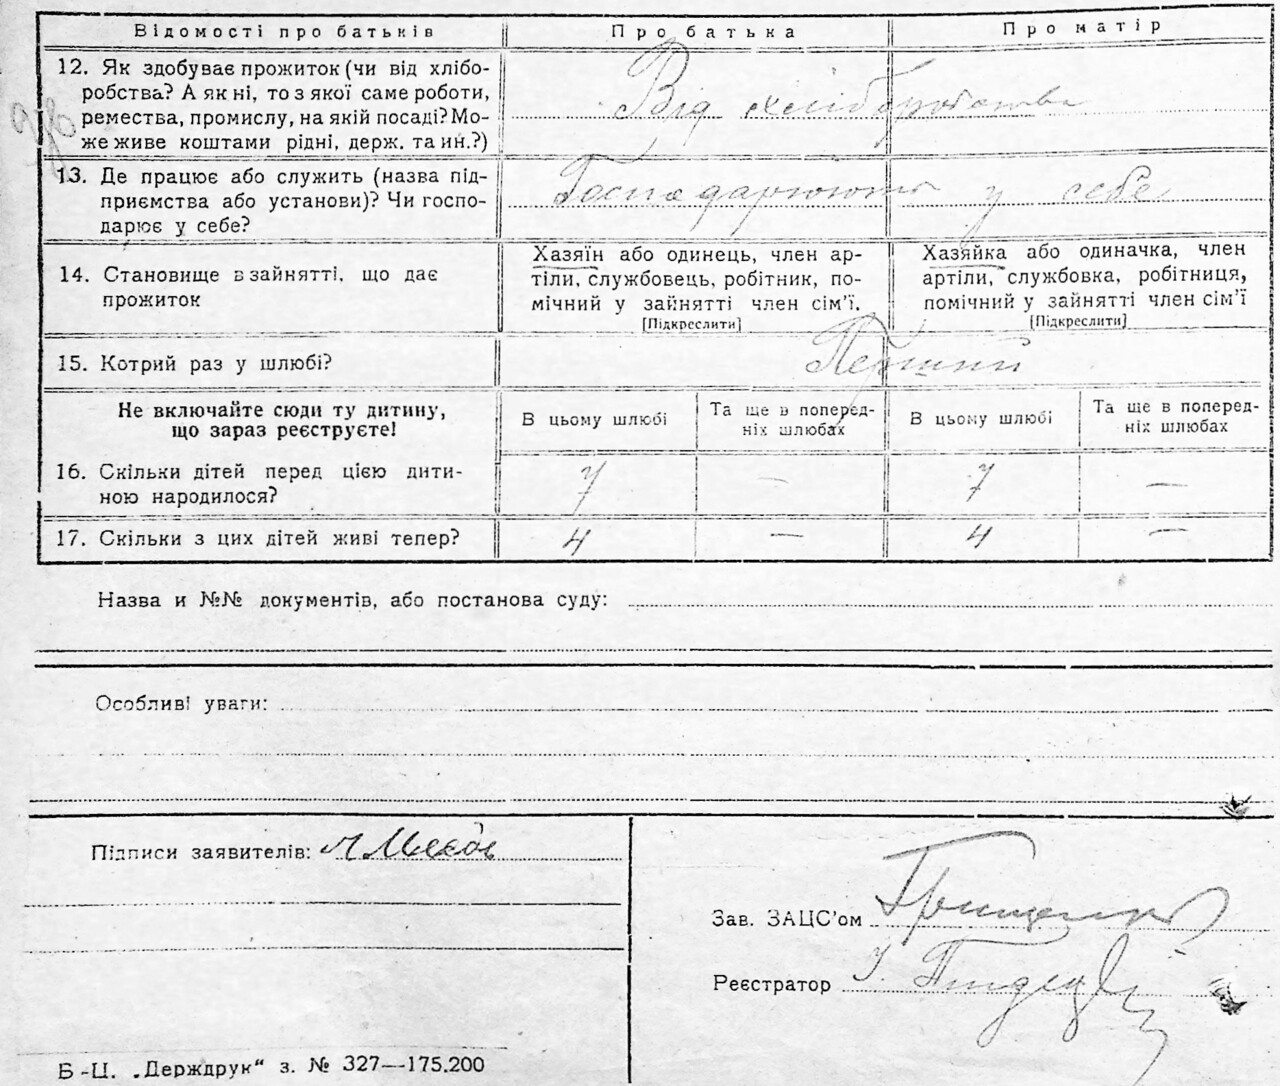 Відомості про батьків Про батька Про матір
12. Як здобуває прожиток (чи від хлібо-
робства? А як ні, то з якої саме роботи,
ремества, промислу, на якій посаді? Мо-
же живе коштами рідні, держ. та ин.?)
Від хліборобства
13. Де працює або служить (назва під-
приємства або установи)? Чи госпо-
дарює у себе?
Господарюють у себе
14. Становище в зайнятті, що дає
прожиток
Хазяїн або одинець, член ар-
тіли, службовець, робітник, по-
мічний у зайнятті член сім'ї.
[Підкреслити]
Хазяйка або одиначка, член
артіли, службовка, робітниця,
помічний у зайнятті член сім'ї
[Підкреслити]
15. Котрий раз у шлюбі? Перший
Не включайте сюди ту дитину,
що зараз реєструєте!
В цьому шлюбі
Та ще в поперед-
ніх шлюбах
В цьому шлюбі
Та ще в поперед-
ніх шлюбах
16. Скільки дітей перед цією дити-
ною народилося?
7 — 7 —
17. Скільки з цих дітей живі тепер? 4 — 4 —
Назва и №№ документів, або постанова суду:
Особливі уваги:
Підписи заявителів:
Зав. ЗАЦС'ом Грищенко
Реєстратор
Б-Ц. „Держдрук“ з. № 327—175.200